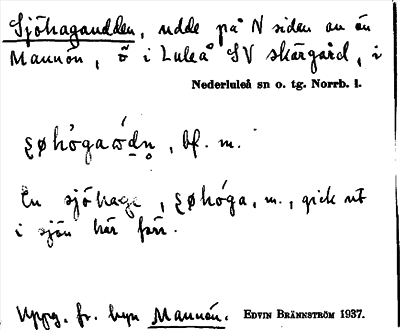 Sjöhagaudden, udde på N sidan av ön
Mannön, ö i Luleå SV skärgård, i
Nederluleå sn o. tg. Norrb. l.
, bf. m.
En sjöhage, m., gick ut
i sjön här förr.
Uppg. fr. byn Mannön. EDVIN BRÄNNSTRÖM 1937.